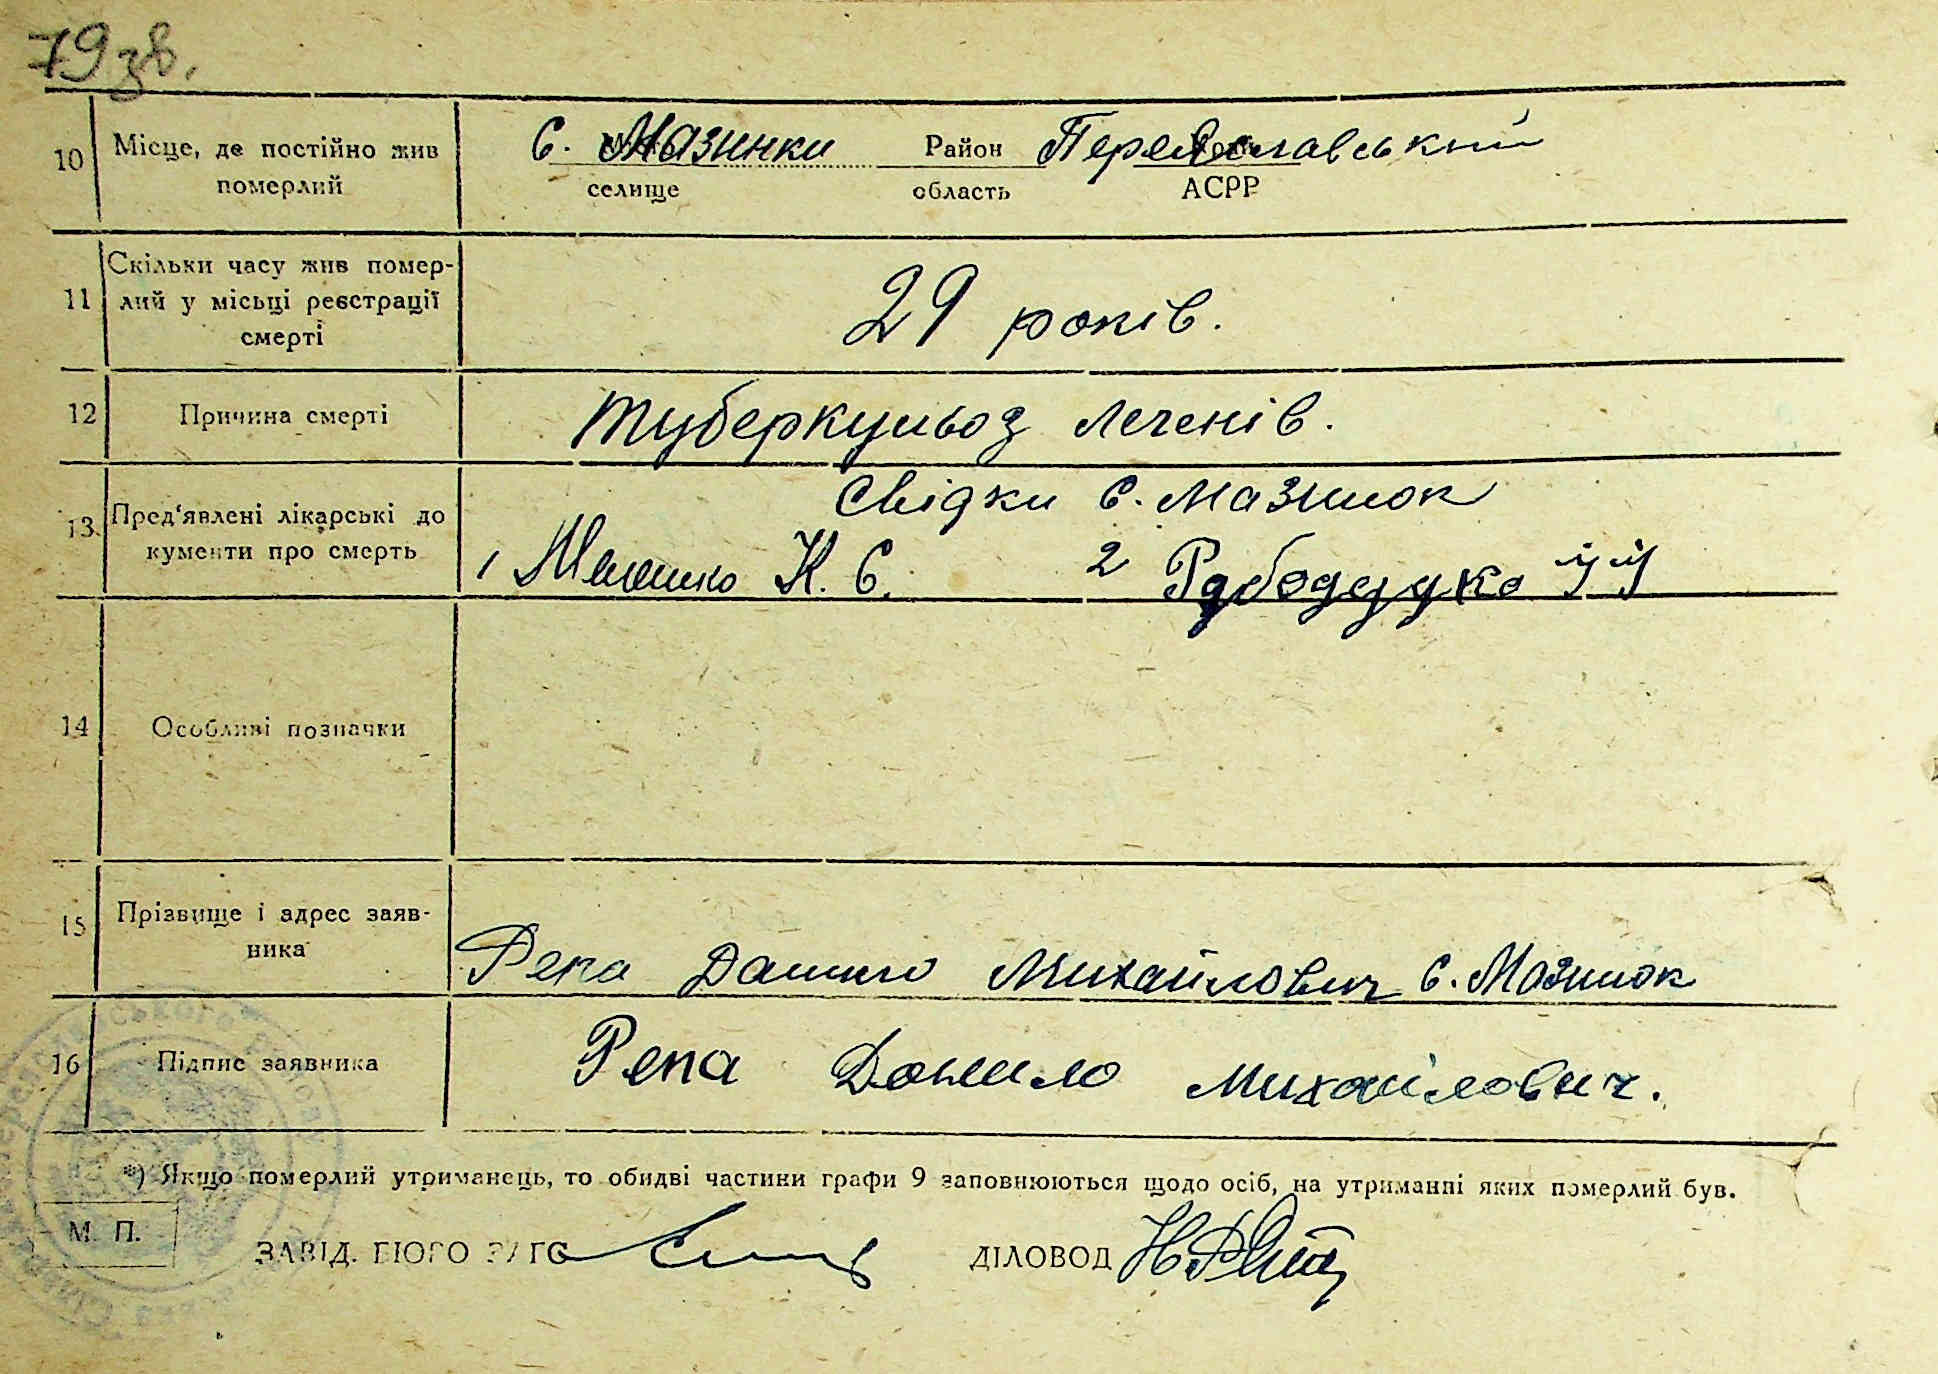 79 зв.
10 Місце, де постійно жив померлий
с. Мазинки Район Переяславський
селище область АСРР
11 Скільки часу жив помер-
лий у місьці реєстрації
смерті
29 років.
12 Причина смерті
туберкульоз легенів.
13. Пред'явлені лікарські до
кументи про смерть
Свідки с. Мазинок
1 К. С. 2
14 Особливі позначки
15 Прізвище і адрес заяв-
ника
Репа Данило Михайлович с. Мазинок
16 Підпис заявника
Репа Данило Михайлович.
*) Якщо померлий утриманець, то обидві частини графи 9 заповнюються щодо осіб, на утриманні яких померлий був.
М. П.
ЗАВІД. БЮРО ЗАГС ДІЛОВОД